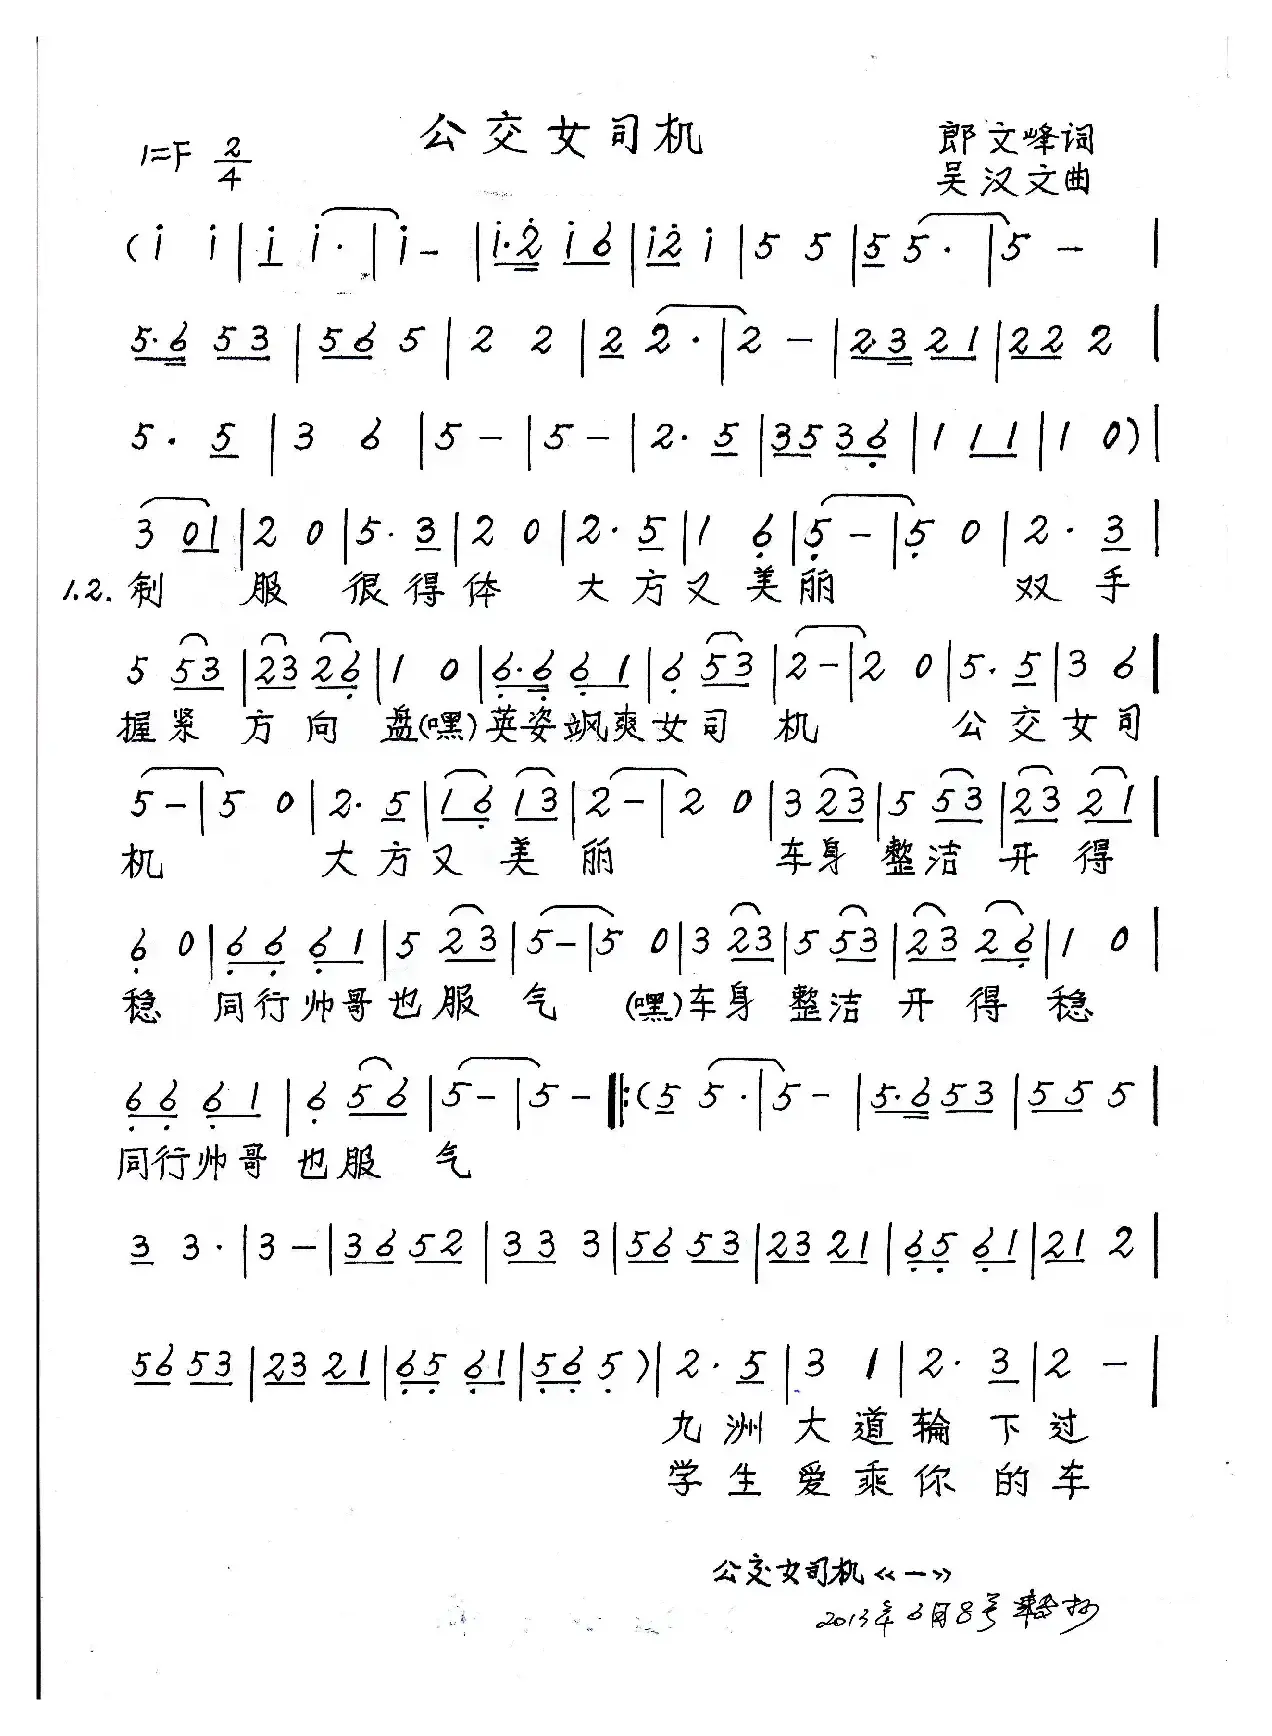 公交女司机
1=F 2/4
郎文峰词
吴汉文曲
(i i | i i· | i – | i·2 i 6 | i2 i | 5 5 | 5 5· | 5 – |
5·6 53 | 56 5 | 2 2 | 2 2· | 2 – | 2·3 21 | 22 2 |
5· 5 | 3 6 | 5 – | 5 – | 2· 5 | 35 36 | 1 11 | 1 0) |
3 01 | 2 0 | 5· 3 | 2 0 | 2· 5 | 1 6 | 5 – | 5 0 | 2· 3 |
1.2. 制 服 很得体 大方又美丽 双手
5 53 | 23 26 | 1 0 | 6·6 61 | 6 53 | 2 – | 2 0 | 5· 5 | 3 6 |
握紧 方向 盘(嘿)英姿飒爽女司 机 公交女司
5 – | 5 0 | 2· 5 | 16 13 | 2 – | 2 0 | 3 23 | 5 53 | 23 21 |
机 大方又 美 丽 车身 整洁 开 得
6 0 | 66 61 | 5 23 | 5 – | 5 0 | 3 23 | 5 53 | 23 26 | 1 0 |
稳 同行帅哥也服 气 (嘿)车身 整洁 开 得 稳
66 61 | 6 56 | 5 – | 5 – ‖: (5 5· | 5 – | 5·6 53 | 55 5 |
同行帅哥 也服 气
3 3· | 3 – | 36 52 | 33 3 | 56 53 | 23 21 | 65 61 | 21 2 |
56 53 | 23 21 | 65 61 | 56 5) | 2· 5 | 3 1 | 2· 3 | 2 – |
九洲大道轮下过
学生爱乘你的车
公交女司机《一》
2013年6月8号 抄